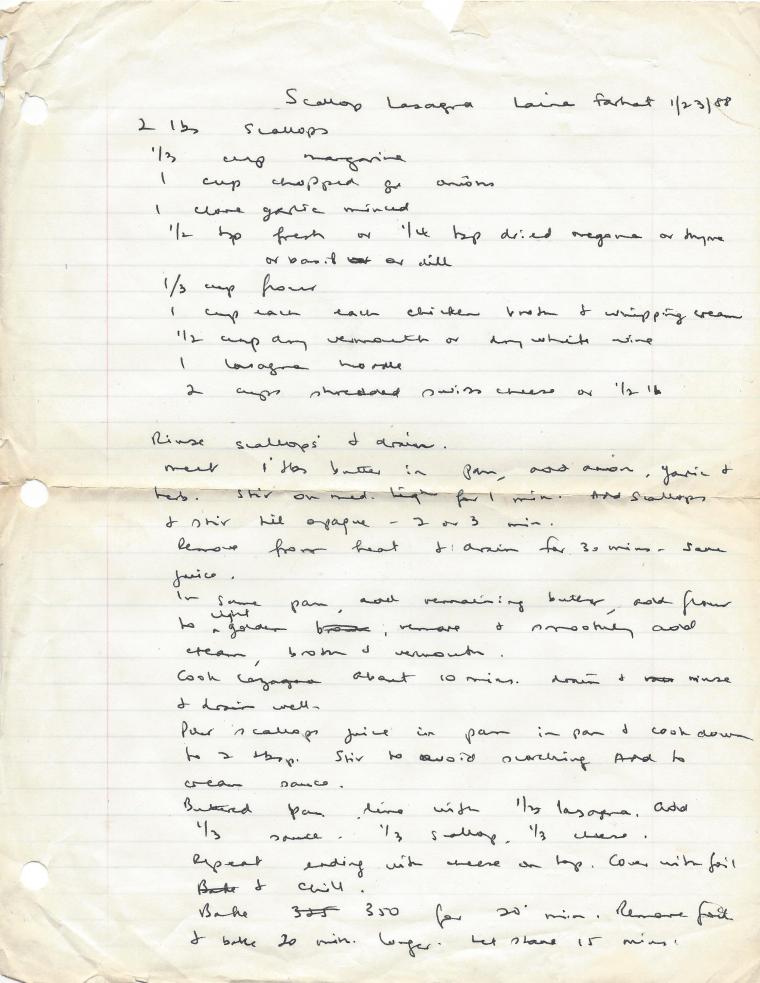 Scallop Lasagna Laina Farhat 1/23/88
2 lbs scallops
1/3 cup margarine
1 cup chopped gr onions
1 clove garlic minced
1/2 tsp fresh or 1/4 tsp dried oregano or thyme
or basil or or dill
1/3 cup flour
1 cup each each chicken broth & whipping cream
1/2 cup dry vermouth or dry white wine
1 lasagna noodle
2 cups shredded swiss cheese or 1/2 lb
Rinse scallops & drain.
melt 1 tbs butter in pan, add onion, garlic &
herb. Stir on med. high for 1 min. Add scallops
& stir til opaque - 2 or 3 min.
Remove from heat & drain for 30 mins - save
juice.
In same pan, add remaining butter, add flour
light
to a golden, remove & smoothly add
cream, broth & vermouth.
Cook lazagna about 10 mins. drain & rinse
& drain well-
Pour scallops juice in pan in pan & cook down
to 2 tbsp. Stir to avoid scorching Add to
cream sauce.
Buttered pan line with 1/3 lasagna. add
1/3 sauce. 1/3 scallop, 1/3 cheese.
Repeat ending with cheese on top. Cover with foil
Bake & chill.
Bake 325 350 for 20 min. Remove foil
& bake 20 min. longer. Let stand 15 mins.